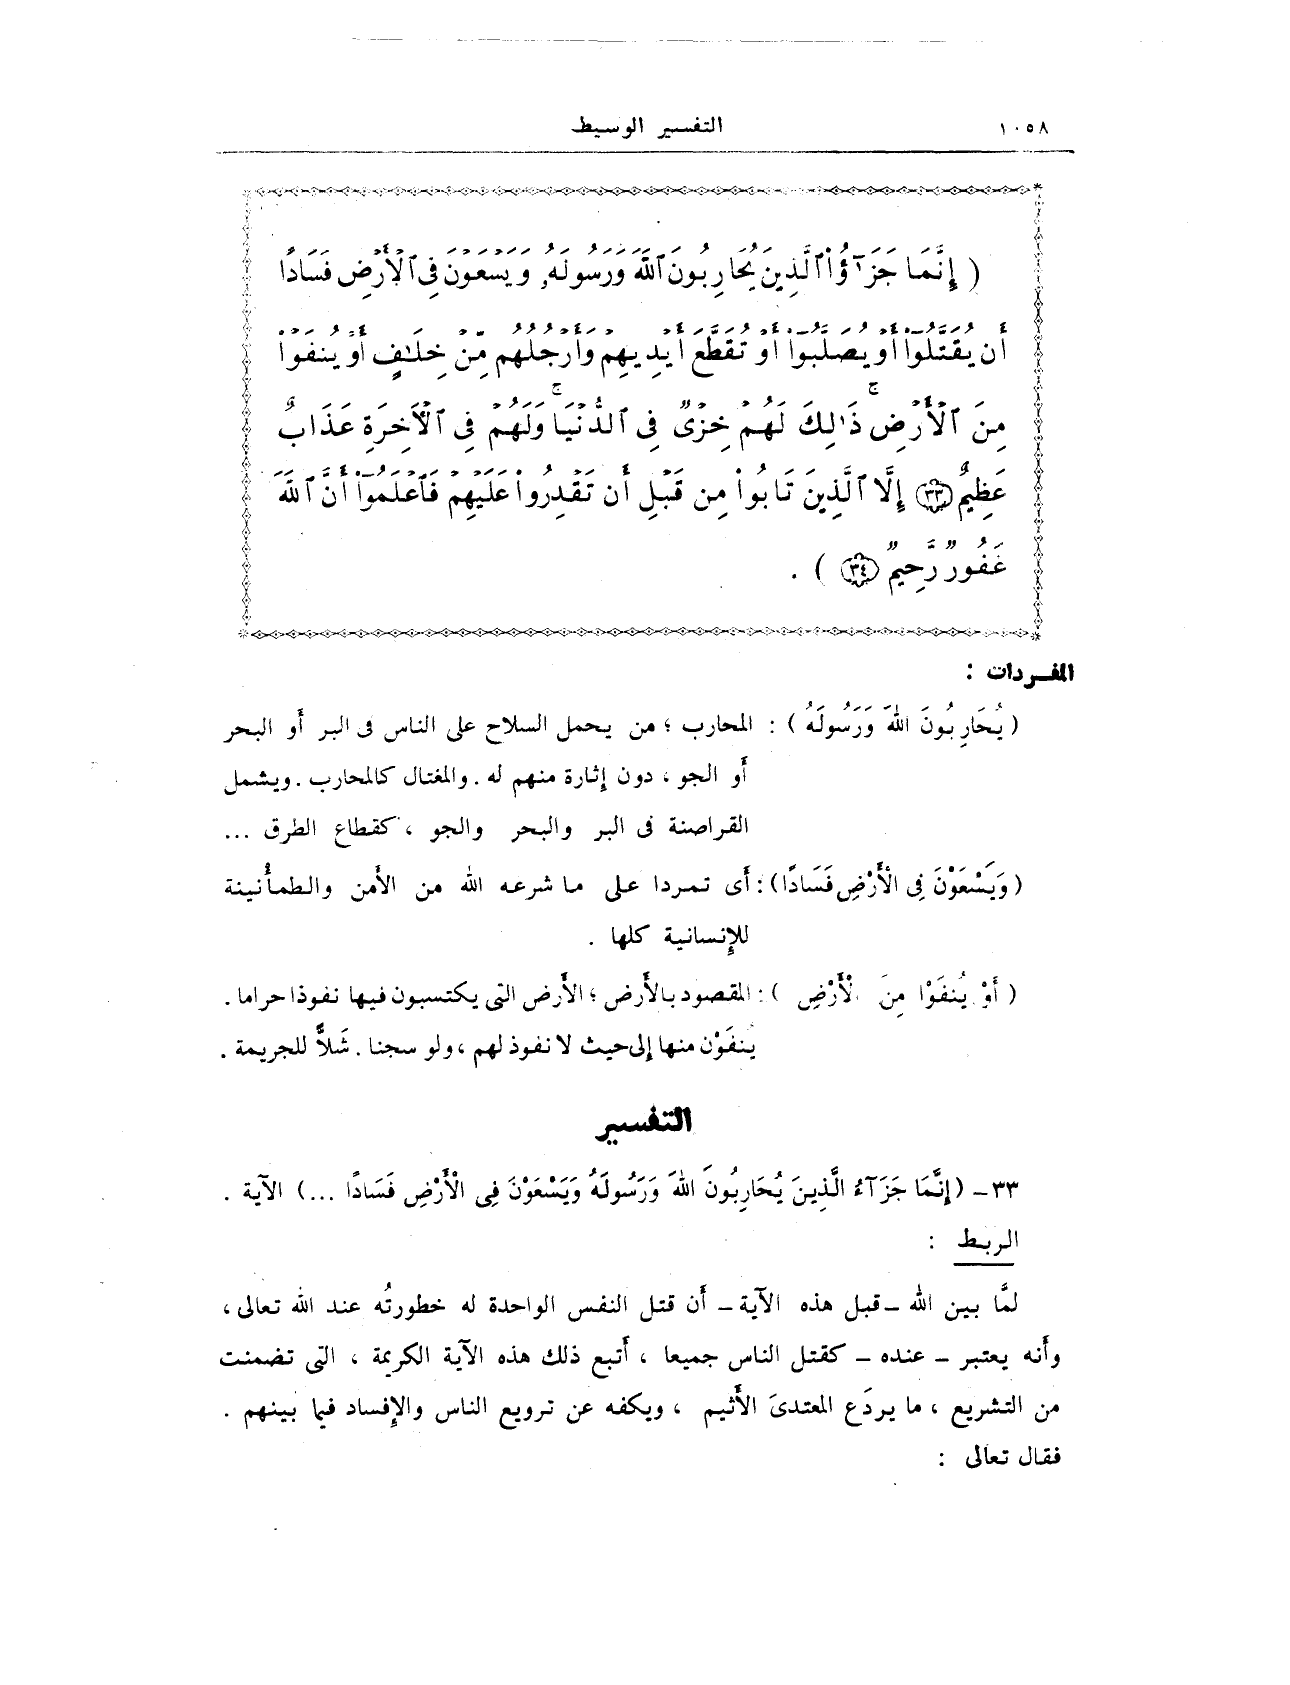 ١٠٥٨
التفسير الوسيط
( إِنَّمَا جَزَٰٓؤُا۟ ٱلَّذِينَ يُحَارِبُونَ ٱللَّهَ وَرَسُولَهُۥ وَيَسْعَوْنَ فِى ٱلْأَرْضِ فَسَادًا
أَن يُقَتَّلُوٓا۟ أَوْ يُصَلَّبُوٓا۟ أَوْ تُقَطَّعَ أَيْدِيهِمْ وَأَرْجُلُهُم مِّنْ خِلَٰفٍ أَوْ يُنفَوْا۟
مِنَ ٱلْأَرْضِ ۚ ذَٰلِكَ لَهُمْ خِزْىٌ فِى ٱلدُّنْيَا ۚ وَلَهُمْ فِى ٱلْأَخِرَةِ عَذَابٌ
عَظِيمٌ ﴿٣٣﴾ إِلَّا ٱلَّذِينَ تَابُوا۟ مِن قَبْلِ أَن تَقْدِرُوا۟ عَلَيْهِمْ فَٱعْلَمُوٓا۟ أَنَّ ٱللَّهَ
غَفُورٌ رَّحِيمٌ ﴿٣٤﴾ ) .
المفـردات :
( يُحَارِبُونَ اللهَ وَرَسُولَهُ ) : المحارب ؛ من يحمل السلاح على الناس فى البر أو البحر
أو الجو ، دون إثارة منهم له . والمغتال كالمحارب . ويشمل
القراصنة فى البر والبحر والجو ، كقطاع الطرق ...
( وَيَسْعَوْنَ فِى الْأَرْضِ فَسَادًا ) : أى تمردا على ما شرعه الله من الأمن والطمأنينة
للإنسانية كلها .
( أَوْ يُنفَوْا مِنَ الْأَرْضِ ) : المقصود بالأرض ؛ الأرض التى يكتسبون فيها نفوذا حراما .
يُنفَوْن منها إلى حيث لا نفوذ لهم ، ولو سجنا . شَلاًّ للجريمة .
التفسير
٣٣ – ( إِنَّمَا جَزَآءُ الَّذِينَ يُحَارِبُونَ اللهَ وَرَسُولَهُ وَيَسْعَوْنَ فِى الْأَرْضِ فَسَادًا ... ) الآية .
الربـط :
لمَّا بين الله – قبل هذه الآية – أن قتل النفس الواحدة له خطورتُه عند الله تعالى ،
وأنه يعتبر – عنده – كقتل الناس جميعا ، أتبع ذلك هذه الآية الكريمة ، التى تضمنت
من التشريع ، ما يردَع المعتدىَ الأثيم ، ويكفه عن ترويع الناس والإفساد فيما بينهم .
فقال تعالى :